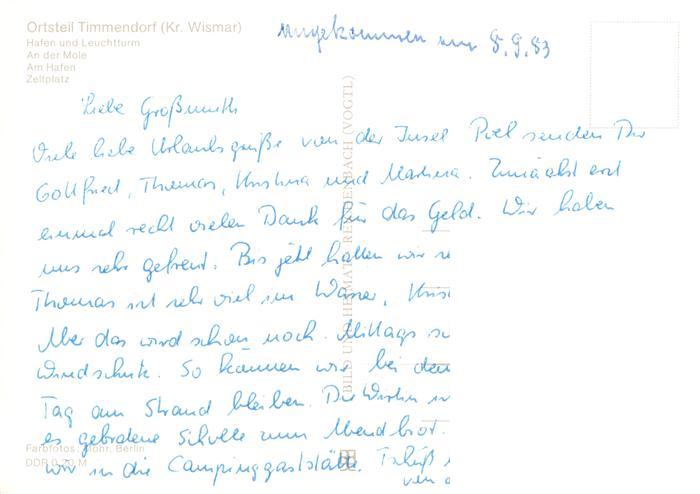 Ortsteil Timmendorf (Kr. Wismar)
Hafen und Leuchtturm
An der Mole
Am Hafen
Zeltplatz
angekommen am 8.9.83
Liebe Großmuth
Viele liebe Urlaubsgrüße von der Insel Poel senden Dir
Gottfried, Thomas, Kristina und Martina. Zunächst erst
einmal recht vielen Dank für das Geld. Wir haben
uns sehr gefreut. Bis jetzt hatten wir
Thomas ist sehr viel im Wasser,
Aber das wird schon noch. Mittags
Windschutz. So können wir bei dem
Tag am Strand bleiben. Die Wirtin
es gebratene Scholle zum Abendbrot.
wir in die Campinggaststätte. Tschüß
von
BILD UND HEIMAT REICHENBACH (VOGTL)
Farbfotos: Mohr, Berlin
DDR 0,20 M